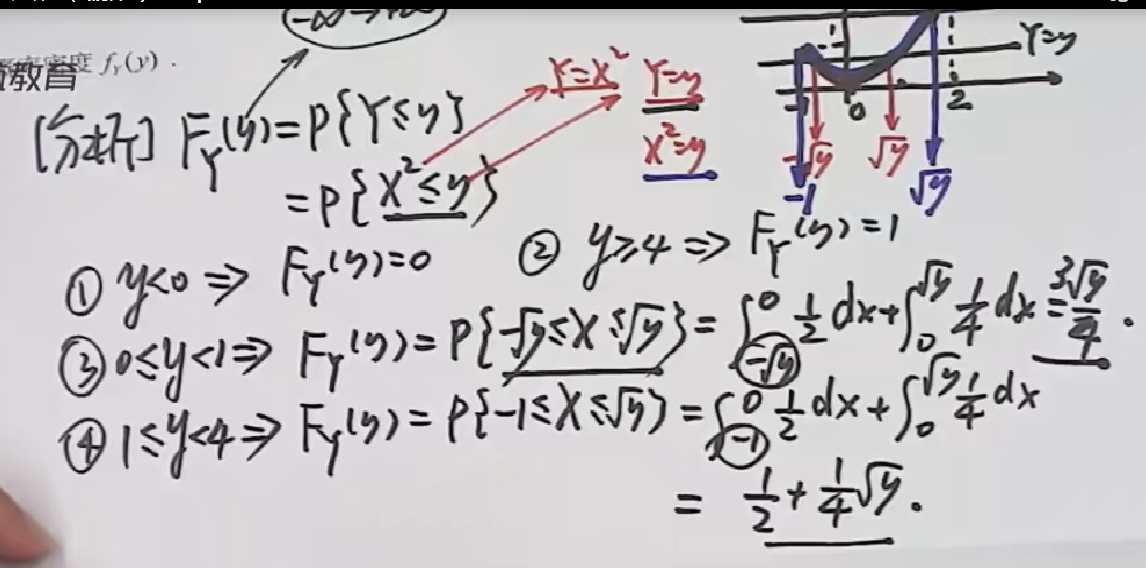 (-∞→+∞)
Y=y
密度 f_Y(y) .
教育
0 2
[分析] F_Y(y)=P{Y≤y}
Y=X² Y=y
=P{X²≤y}
X²=y
-√y √y
-1 √y
① y<0 ⇒ F_Y(y)=0 ② y≥4 ⇒ F_Y(y)=1
③ 0≤y<1⇒ F_Y(y)=P{-√y≤X≤√y}=∫_{-√y}^{0} 1/2 dx+∫_{0}^{√y} 1/4 dx=3√y/4 .
④ 1≤y<4⇒ F_Y(y)=P{-1≤X≤√y}=∫_{-1}^{0} 1/2 dx+∫_{0}^{√y} 1/4 dx
= 1/2+1/4√y .